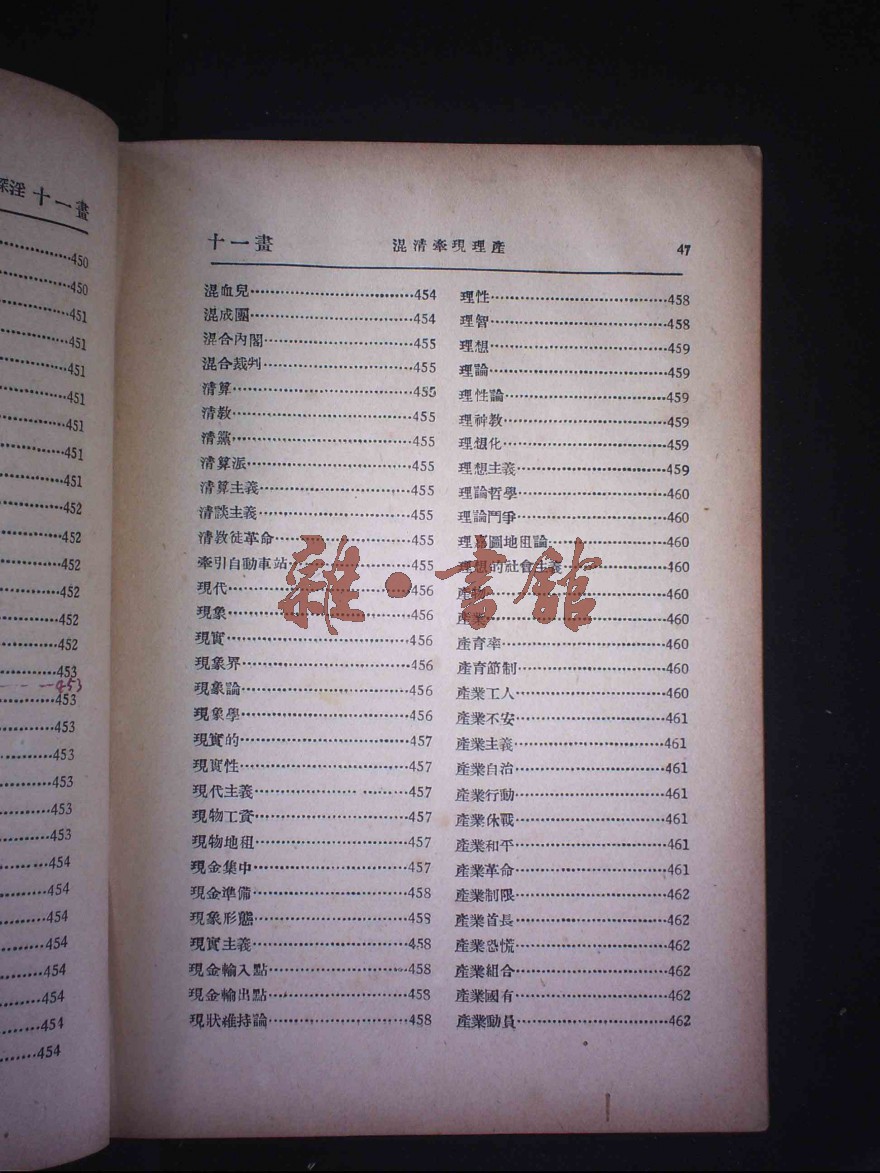 淫 十一畫
450
450
451
451
451
451
451
451
451
452
452
452
452
452
452
453
453
453
453
453
453
453
454
454
454
454
454
454
454
454
十一畫 混清牽現理產 47
混血兒 454
混成團 454
混合內閣 455
混合裁判 455
清算 455
清教 455
清黨 455
清算派 455
清算主義 455
清談主義 455
清教徒革命 455
牽引自動車站 455
現代 456
現象 456
現實 456
現象界 456
現象論 456
現象學 456
現實的 457
現實性 457
現代主義 457
現物工資 457
現物地租 457
現金集中 457
現金準備 458
現象形態 458
現實主義 458
現金輸入點 458
現金輸出點 458
現狀維持論 458
理性 458
理智 458
理想 459
理論 459
理性論 459
理神教 459
理想化 459
理想主義 459
理論哲學 460
理論鬥爭 460
理嘉圖地租論 460
理想的社會主義 460
產物 460
產業 460
產育率 460
產育節制 460
產業工人 460
產業不安 461
產業主義 461
產業自治 461
產業行動 461
產業休戰 461
產業和平 461
產業革命 461
產業制限 462
產業首長 462
產業恐慌 462
產業組合 462
產業國有 462
產業動員 462
雜·書館